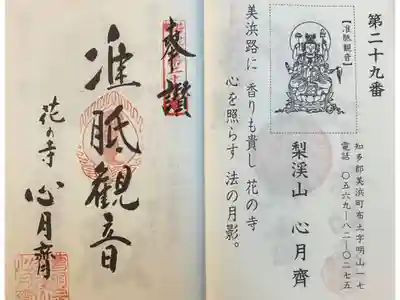 第二十九番
【准胝観音】
梨渓山 心月齊
知多郡美浜町布土字明山一七
電話 〇五六九―八二―〇二七五
美浜路に 香りも貴し 花の寺
心を照らす 法の月影。
奉讃
准胝観音
花の寺 心月齊